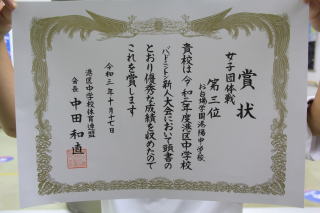 賞状
女子団体戦
第三位
お台場学園港陽中学校
貴校は令和三年度港区中学校
バドミントン新人大会において頭書の
とおり優秀な成績を収めたので
これを賞します
令和三年十月十七日
港区中学校体育連盟
会長 中田和直